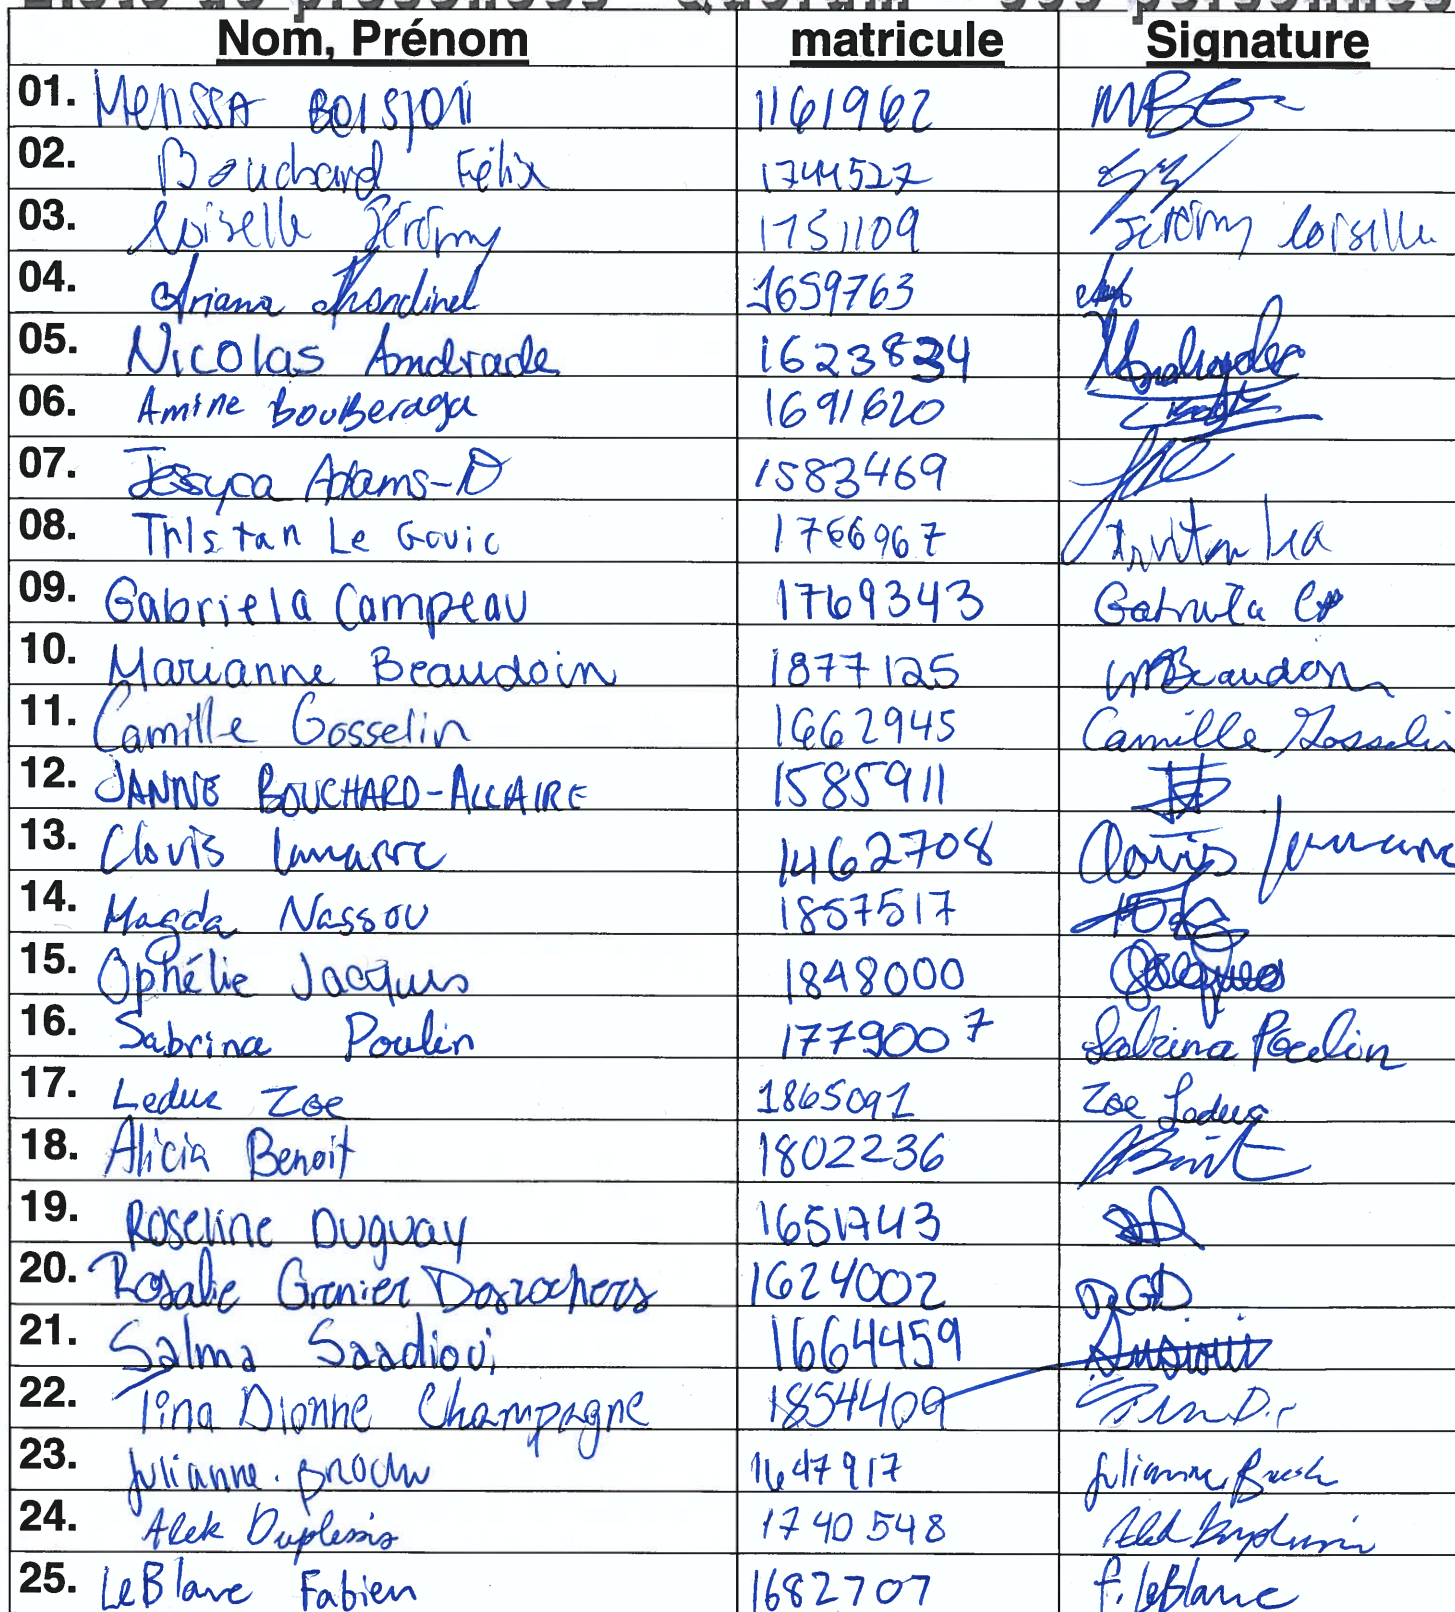 Liste de présences Quorum 350 personnes
Nom, Prénom matricule Signature
01. Merissa Boisjoli 1161962
02. Bouchard Félix 1744527
03. Loiselle Jérémy 1751109 Jérémy Loiselle
04. Ariana 1659763
05. Nicolas Andrade 1623834
06. Amine BouBeraga 1691620
07. Jessyca Adams-D 1583469
08. Tristan Le Gouic 1766967
09. Gabriela Campeau 1769343 Gabriela
10. Marianne Beaudoin 1877125 MBeaudoin
11. Camille Gosselin 1662945 Camille Gosselin
12. JANNE BOUCHARD-ALLAIRE 1585911
13. Clovis Lamarre 1462708 Clovis Lamarre
14. Magda Nassou 1857517
15. Ophélie Jacques 1848000 Jacques
16. Sabrina Poulin 1779007 Sabrina Poulin
17. Leduc Zoe 1865091 Zoe Leduc
18. Alicia Benoit 1802236
19. Roseline Duguay 1651743
20. Rosalie Grenier Desrochers 1624002 RGD
21. Salma Saadioui 1664459
22. Tina Dionne Champagne 1854409
23. Julianne Brochu 1647917 Julianne Brochu
24. Alek Duplessis 1740548 Alek Duplessis
25. LeBlanc Fabien 1682707 F. LeBlanc